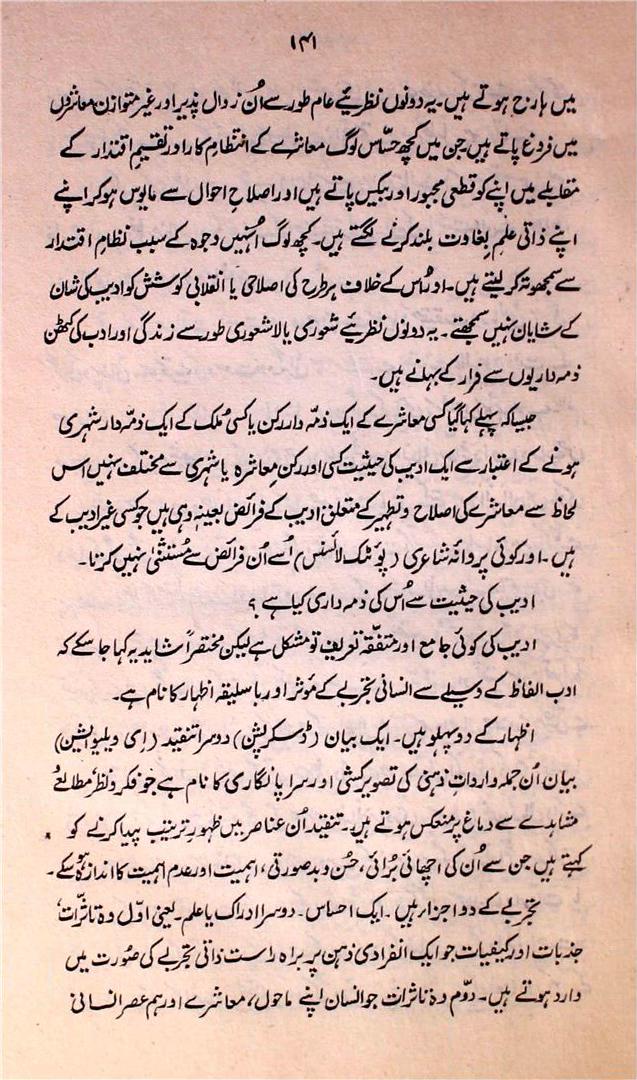 ۱۴۱
میں ہارج ہوتے ہیں۔ یہ دونوں نظریئے عام طور سے اُن زوال پذیر اور غیر متوازن معاشروں
میں فروغ پاتے ہیں جن میں کچھ حسّاس لوگ معاشرے کے انتظامِ کار اور تقسیمِ اقتدار کے
مقابلے میں اپنے کو قطعی مجبور اور بیکس پاتے ہیں اور اصلاحِ احوال سے مایوس ہو کر اپنے
اپنے ذاتی علمِ بغاوت بلند کرنے لگتے ہیں۔ کچھ لوگ اُنہیں وجوہ کے سبب نظامِ اقتدار
سے سمجھوتہ کر لیتے ہیں۔ اور اُس کے خلاف ہر طرح کی اصلاحی یا انقلابی کوشش کو ادیب کی شان
کے شایان نہیں سمجھتے۔ یہ دونوں نظریئے شعوری یا لاشعوری طور سے زندگی اور ادب کی کٹھن
ذمہ داریوں سے فرار کے بہانے ہیں۔
جیسا کہ پہلے کہا گیا کسی معاشرے کے ایک ذمّہ دار رکن یا کسی مُلک کے ایک ذمّہ دار شہری
ہونے کے اعتبار سے ایک ادیب کی حیثیت کسی اور رکنِ معاشرہ یا شہری سے مختلف نہیں اس
لحاظ سے معاشرے کی اصلاح و تطہیر کے متعلق ادیب کے فرائض بعینہ وہی ہیں جو کسی غیر ادیب کے
ہیں۔ اور کوئی پروانہ شاعری (پوئٹک لائسنس) اُسے اُن فرائض سے مُستثنیٰ نہیں کرتا۔
ادیب کی حیثیت سے اُس کی ذمہ داری کیا ہے ؟
ادیب کی کوئی جامع اور متفّقہ تعریف تو مشکل ہے لیکن مختصراً شاید یہ کہا جا سکے کہ
ادب الفاظ کے وسیلے سے انسانی تجربے کے مَوثر اور باسلیقہ اظہار کا نام ہے۔
اظہار کے دو پہلو ہیں۔ ایک بیان (ڈسکرپشن) دوسرا تنقید (اِی ویلیوایشن)
بیان اُن جملہ وارداتِ ذہنی کی تصویر کشی اور سراپا نگاری کا نام ہے جو فکر و نظر، مطالعے و
مشاہدے سے دماغ پر منعکس ہوتے ہیں۔ تنقید اُن عناصر میں ظہورِ ترتیب پیدا کرنے کو
کہتے ہیں جن سے اُن کی اچھائی بُرائی، حُسن و بدصورتی، اہمیت اور عدم اہمیت کا اندازہ ہو سکے۔
تجربے کے دو اجزاء ہیں۔ ایک احساس۔ دوسرا ادراک یا علم۔ یعنی اوّل وہ تاثّرات،
جذبات اور کیفیات جو ایک انفرادی ذہن پر براہ راست ذاتی تجربے کی صُورت میں
وارد ہوتے ہیں۔ دوّم وہ تاثرات جو انسان اپنے ماحول، معاشرے اور ہم عصر انسانی